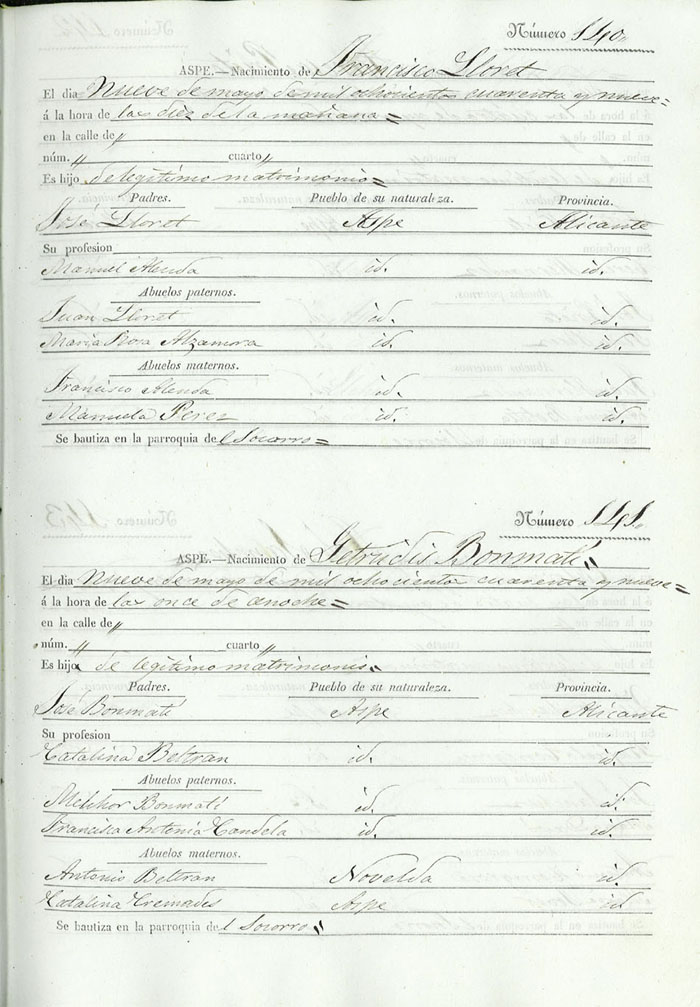 Número 140.
ASPE.—Nacimiento de Francisco Lloret
El dia Nueve de mayo de mil ochocientos cuarenta y nueve=
á la hora de las diez de la mañana=
en la calle de „
núm. „ cuarto „
Es hijo de legitimo matrimonio=
Padres. Pueblo de su naturaleza. Provincia.
Jose Lloret Aspe Alicante
Su profesion
Manuel Alenda id. id.
Abuelos paternos.
Juan Lloret id. id.
Maria Rosa Alzamora id. id.
Abuelos maternos.
Francisco Alenda id. id.
Manuela Perez id. id.
Se bautiza en la parroquia del Socorro=
Número 141.
ASPE.—Nacimiento de Getrudis Bonmatí „
El dia Nueve de mayo de mil ochocientos cuarenta y nueve=
á la hora de las once de anoche=
en la calle de „
núm. „ cuarto „
Es hija de legitimo matrimonio.
Padres. Pueblo de su naturaleza. Provincia.
José Bonmatí Aspe Alicante
Su profesion
Catalina Beltran id. id.
Abuelos paternos.
Melchor Bonmatí id. id.
Francisca Antonia Candela id. id.
Abuelos maternos.
Antonio Beltran Novelda id.
Catalina Cremades Aspe id
Se bautiza en la parroquia del Socorro „